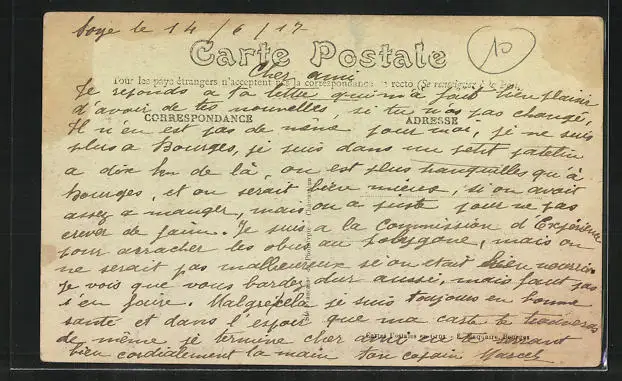 Soye le 14/6/17
Carte Postale
Cher ami
Tous les pays étrangers n'acceptent pas la correspondance au recto (Se renseigner à la Poste)
Je reponds a ta lettre qui m'a fait bien plaisir
d'avoir de tes nouvelles, si tu n'as pas changé,
CORRESPONDANCE ADRESSE
Il n'en est pas de même pour moi, je ne suis
plus a Bourges, je suis dans un petit patelin
a dix km de là, on est plus tranquilles qu'à
Bourges, et on serait bien mieux, si on avait
assez a manger, mais on a juste pour ne pas
crever de faim. Je suis a la Commission d'Expérience
pour arracher les obus au polygone, mais on
ne serait pas malheureux si on etait bien nourris
Je vois que vous bardez dur aussi, mais faut pas
s'en faire. Malgré cela je suis toujours en bonne
santé et dans l'espoir que ma carte te trouveras
de même je termine cher ami en te serrant
bien cordialement la main ton copain Marcel